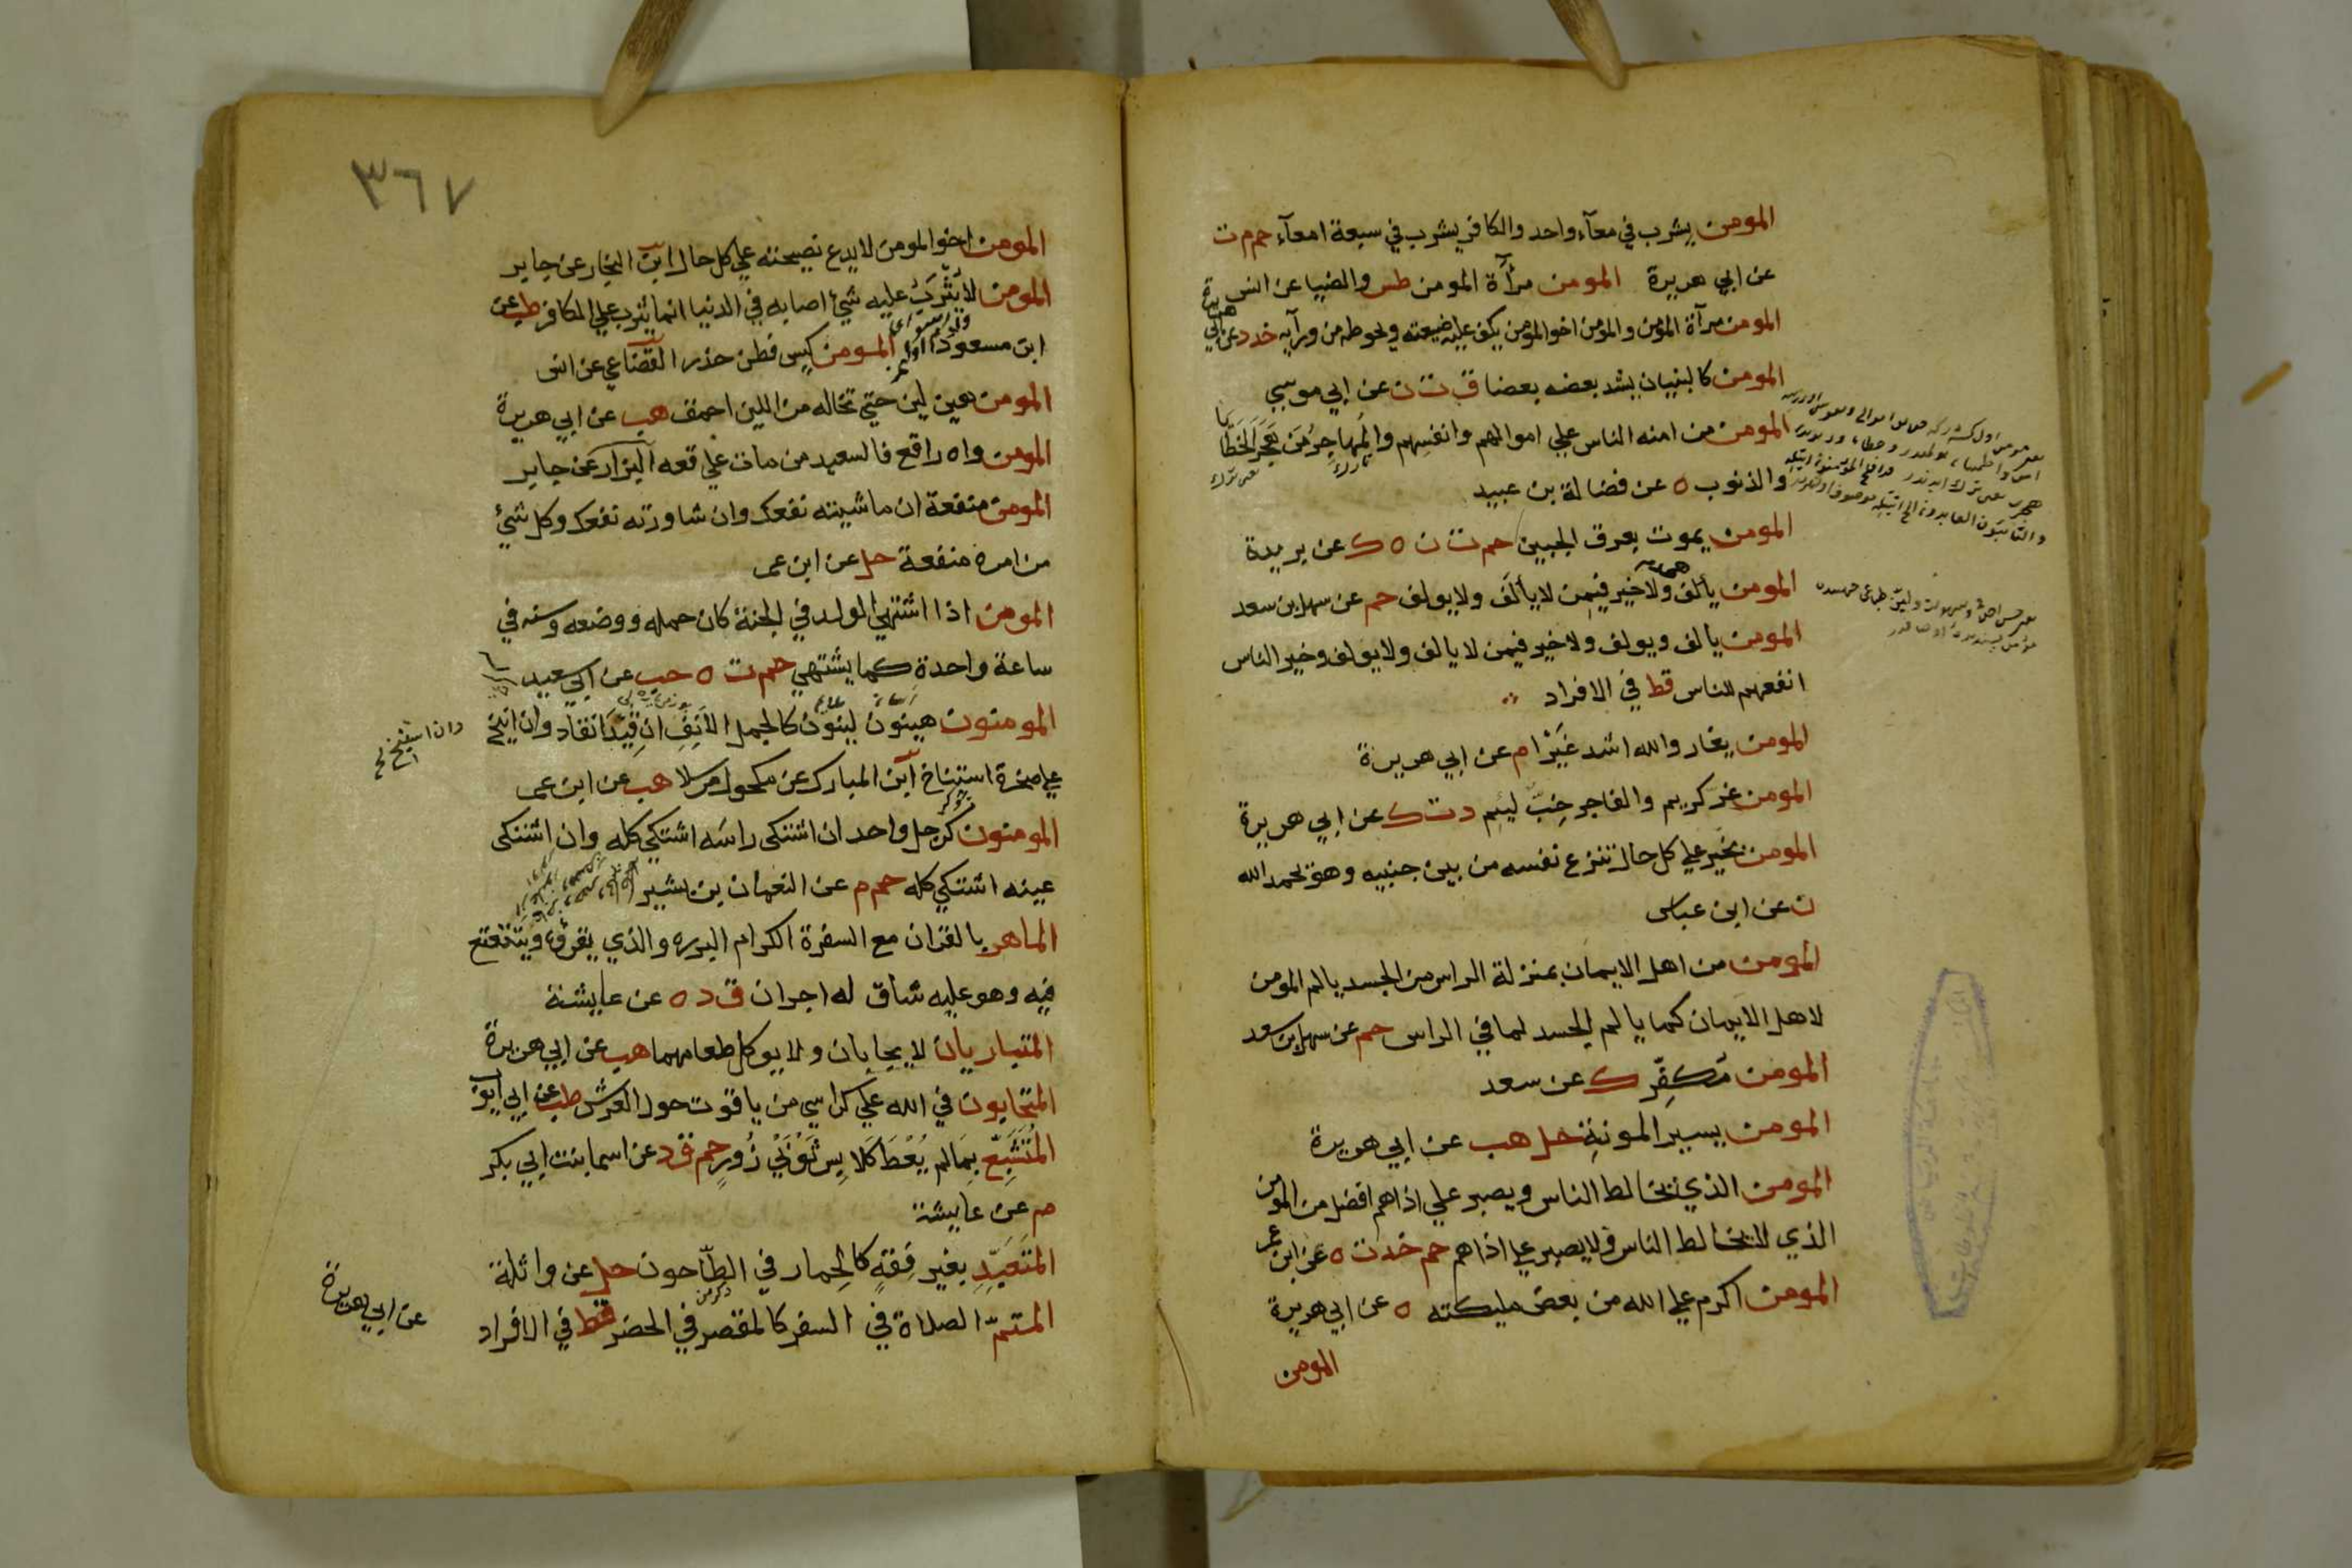 المومن يشرب في معآء واحد والكافر يشرب في سبعة امعآء حم م ت
عن ابي هريرة المومن مرآة المومن طس والضيا عن انس
المومن مرآة المؤمن والمؤمن اخو المؤمن يكف عليه ضيعته ويحوطه من ورآيه خد د عن ابي هريرة
المومن كالبنيان يشد بعضه بعضا ق ت ن عن ابي موسي
المومن من امنه الناس علي اموالهم وانفسهم والمهاجر من هجر الخطايا
والذنوب ه عن فضالة بن عبيد
المومن يموت بعرق الجبين حم ت ن ه ك عن بريدة
المومن يألف ولا خير فيمن لا يألف ولا يولف حم عن سهل بن سعد
المومن يالف ويولف ولا خير فيمن لا يالف ولا يولف وخير الناس
انفعهم للناس قط في الافراد
المومن يغار والله اشد غيرا م عن ابي هريرة
المومن غر كريم والفاجر خب ليئم د ت ك عن ابي هريرة
المومن بخير علي كل حال تنزع نفسه من بين جنبيه وهو يحمد الله
ن عن ابن عباس
المومن من اهل الايمان بمنزلة الراس من الجسد يالم المومن
لاهل الايمان كما يالم الجسد لما في الراس حم عن سهل بن سعد
المومن مكفر ك عن سعد
المومن يسير المونة حل هب عن ابي هريرة
المومن الذي يخالط الناس ويصبر علي اذاهم افضل من المؤمن
الذي لا يخالط الناس ولا يصبر علي اذاهم حم خد ت ه عن ابن عمر
المومن اكرم علي الله من بعض مليكته ه عن ابي هريرة
المومن
٣٦٧
المومن اخو المومن لا يدع نصيحته علي كل حال ابن النجار عن جابر
المومن لا يثرب عليه شئ اصابه في الدنيا انما يثرب علي الكافر طب عن
ابن مسعود المومن كيس فطن حذر القضاعي عن انس
المومن هين لين حتي تخاله من اللين احمق هب عن ابي هريرة
المومن واه راقع فالسعيد من مات علي رقعه البزار عن جابر
المومن منفعة ان ماشيته نفعك وان شاورته نفعك وكل شئ
من امره منفعة حل عن ابن عمر
المومن اذا اشتهي الولد في الجنة كان حمله ووضعه وسنه في
ساعة واحدة كما يشتهي حم ت ه حب عن ابي سعيد
المومنون هينون لينون كالجمل الانف ان قيد انقاد وان انيخ
علي صخرة استناخ ابن المبارك عن مكحول مرسلا هب عن ابن عمر
المومنون كرجل واحد ان اشتكى راسه اشتكي كله وان اشتكى
عينه اشتكي كله حم م عن النعمان بن بشير
الماهر بالقران مع السفرة الكرام البرره والذي يقرؤه ويتتعتع
فيه وهو عليه شاق له اجران ق د ه عن عايشة
المتباريان لا يجابان ولا يوكل طعامهما هب عن ابي هريرة
المتحابون في الله علي كراسي من ياقوت حول العرش طب عن ابي ايوب
المتشبع بما لم يعط كلابس ثوبي زور حم ق د عن اسما بنت ابي بكر
م عن عايشة
المتعبد بغير فقه كالحمار في الطاحون حل عن واثلة
المتم الصلاة في السفر كالمقصر في الحضر قط في الافراد
عن ابي هريرة